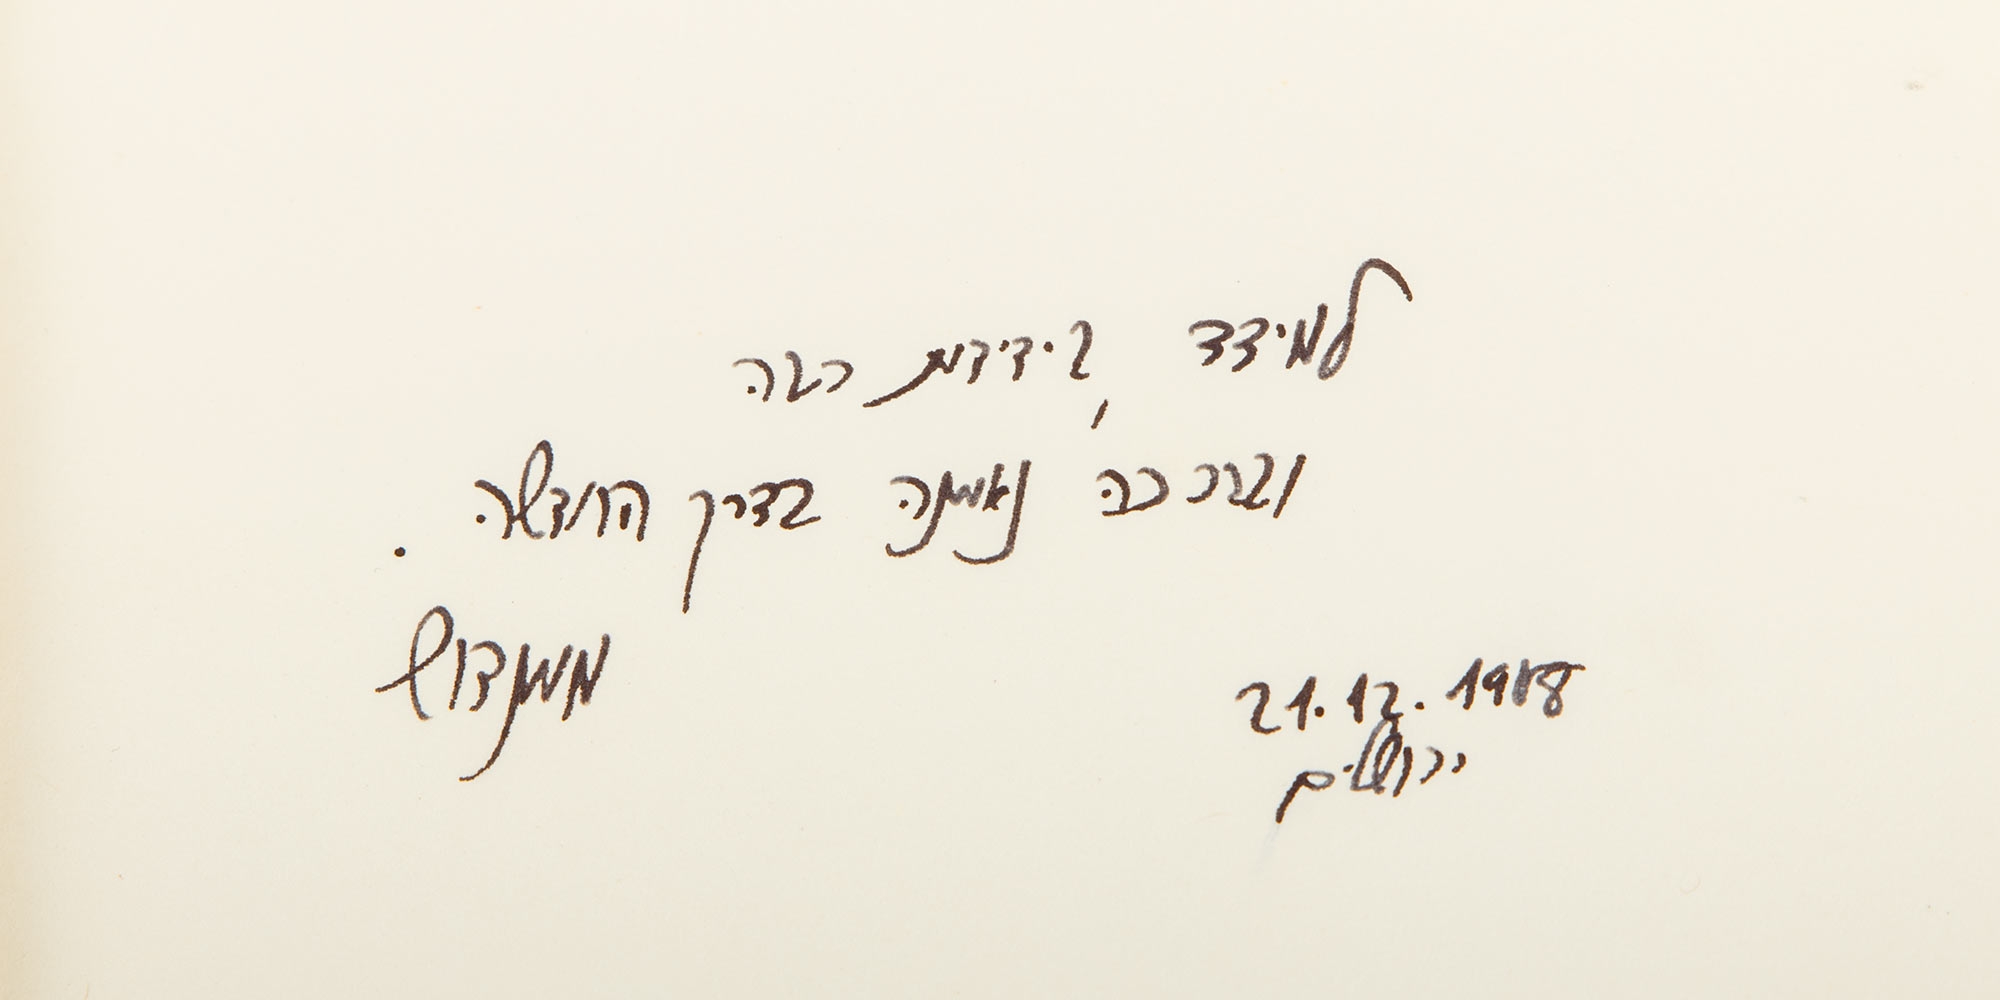 למידד בידידות רבה,
ובברכה נאמנה בדרך החדשה.
21.12.1978
ירושלים